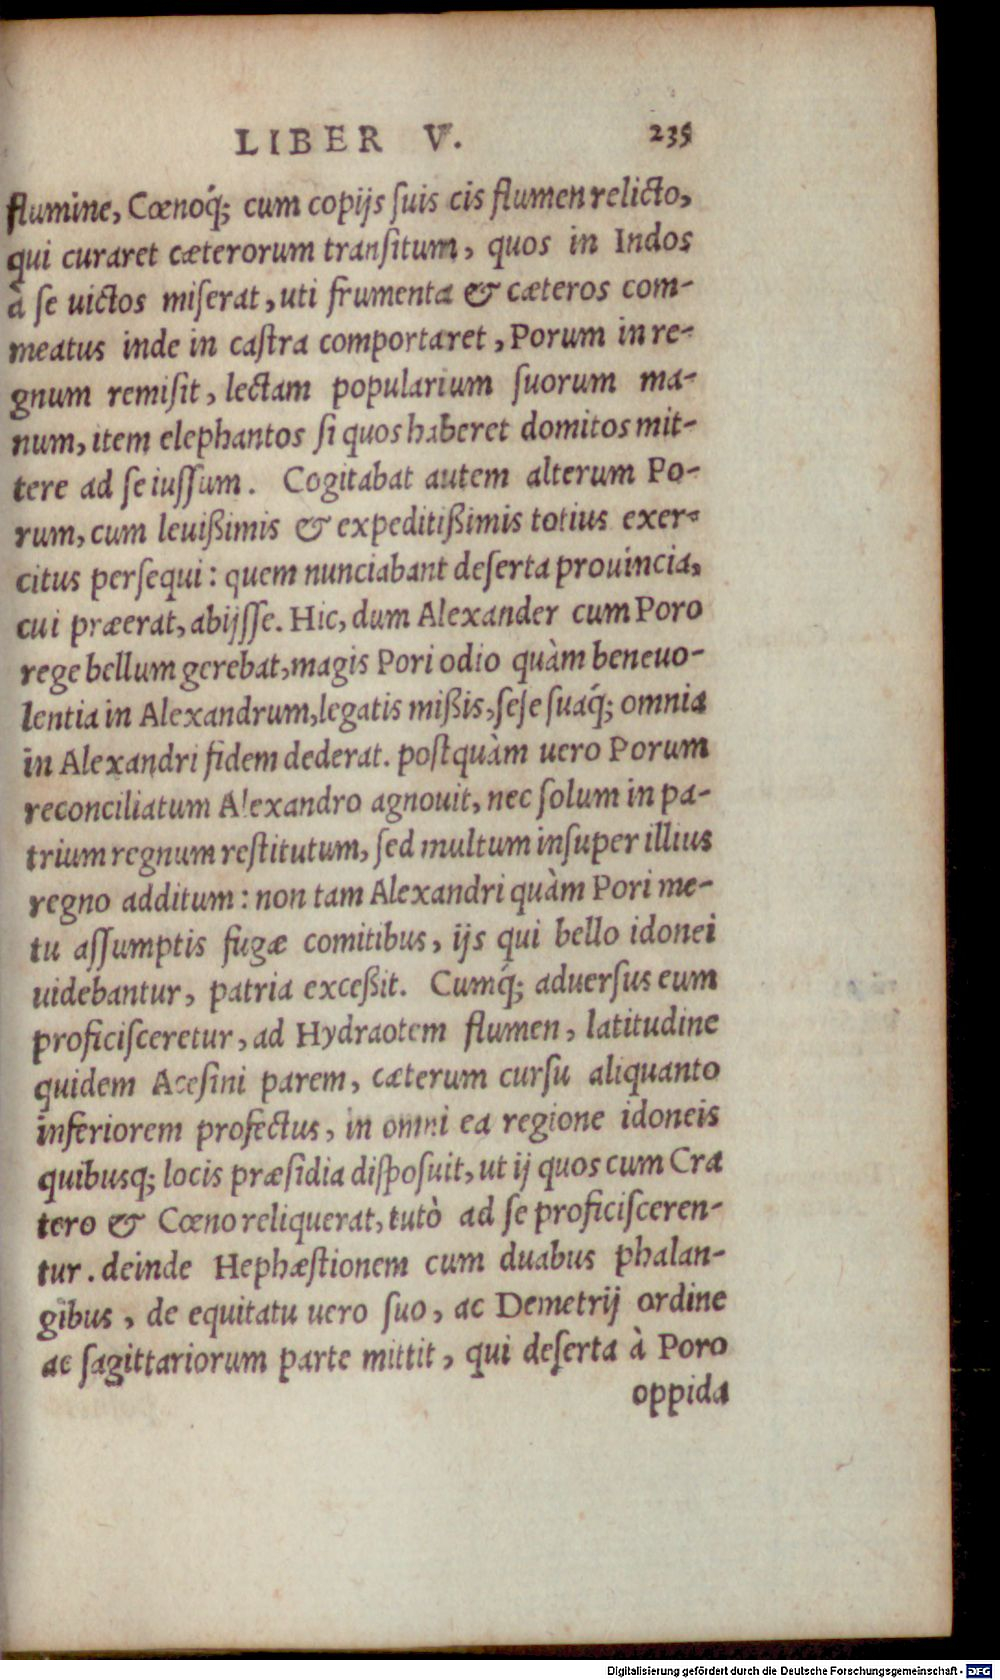 LIBER V. 235
flumine, Cœnoq́; cum copijs ſuis cis flumen relicto,
qui curaret cæterorum tranſitum, quos in Indos
à ſe uictos miſerat, uti frumenta & cæteros com-
meatus inde in caſtra comportaret, Porum in re-
gnum remiſit, lectam popularium ſuorum ma-
num, item elephantos ſi quos haberet domitos mit-
tere ad ſe iuſſum. Cogitabat autem alterum Po-
rum, cum leuißimis & expeditißimis totius exer-
citus perſequi: quem nunciabant deſerta prouincia,
cui præerat, abijſſe. Hic, dum Alexander cum Poro
rege bellum gerebat, magis Pori odio quàm beneuo-
lentia in Alexandrum, legatis mißis, ſeſe suaq́; omnia
in Alexandri fidem dederat. poſtquàm uero Porum
reconciliatum Alexandro agnouit, nec ſolum in pa-
trium regnum reſtitutum, ſed multum inſuper illius
regno additum: non tam Alexandri quàm Pori me-
tu aſſumptis fugæ comitibus, ijs qui bello idonei
uidebantur, patria exceßit. Cumq́; aduerſus eum
proficiſceretur, ad Hydraotem flumen, latitudine
quidem Acesini parem, cæterum curſu aliquanto
inferiorem profectus, in omni ea regione idoneis
quibusq; locis præſidia diſpoſuit, ut ij quos cum Cra
tero & Cœno reliquerat, tutò ad ſe proficiſceren-
tur. deinde Hephæſtionem cum duabus phalan-
gibus, de equitatu uero ſuo, ac Demetrij ordine
ac ſagittariorum parte mittit, qui deſerta à Poro
oppida
Digitalisierung gefördert durch die Deutsche Forschungsgemeinschaft - DFG